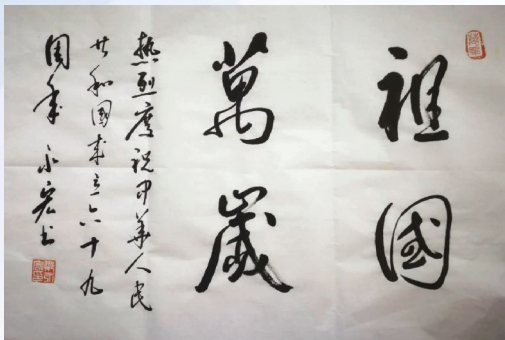 祖國
萬歲
热烈庆祝中華人民
共和國成立六十九
周年 永宏书